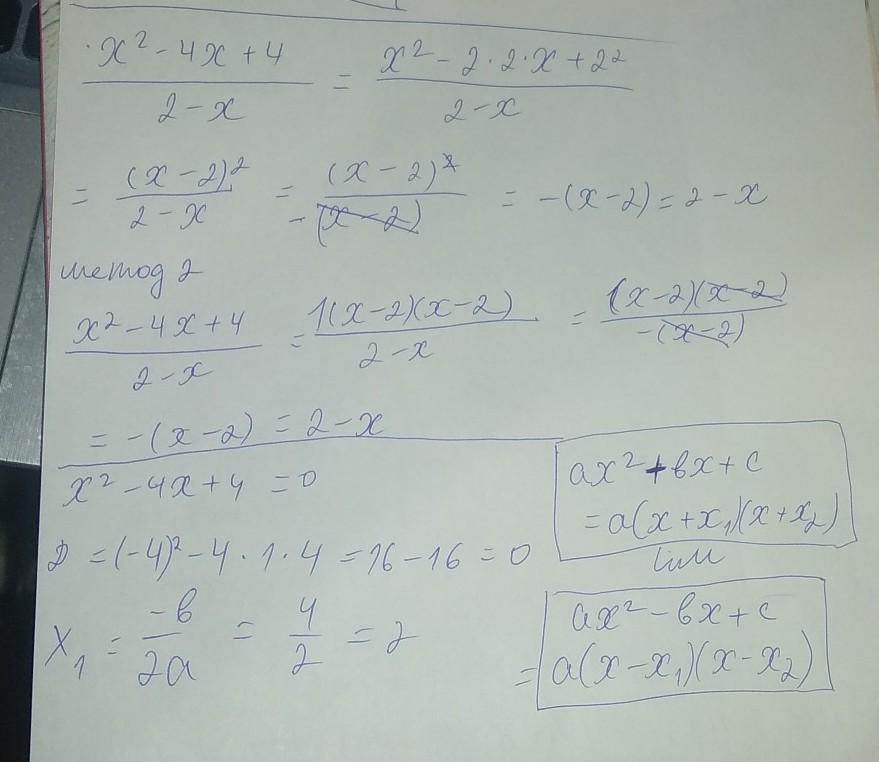 x² - 4x + 4 / 2 - x = x² - 2·2·x + 2² / 2 - x
= (x - 2)² / 2 - x = (x - 2)² / -(x - 2) = -(x - 2) = 2 - x
метод 2
x² - 4x + 4 / 2 - x = 1(x - 2)(x - 2) / 2 - x = (x - 2)(x - 2) / -(x - 2)
= -(x - 2) = 2 - x
x² - 4x + 4 = 0
D = (-4)² - 4·1·4 = 16 - 16 = 0
x₁ = -b / 2a = 4 / 2 = 2
ax² + bx + c
= a(x + x₁)(x + x₂)
или
ax² - bx + c
= a(x - x₁)(x - x₂)